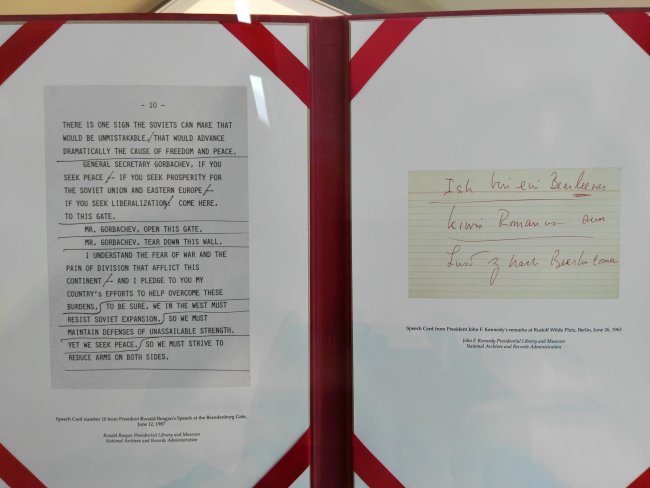 - 10 -
THERE IS ONE SIGN THE SOVIETS CAN MAKE THAT
WOULD BE UNMISTAKABLE, THAT WOULD ADVANCE
DRAMATICALLY THE CAUSE OF FREEDOM AND PEACE.
GENERAL SECRETARY GORBACHEV, IF YOU
SEEK PEACE -- IF YOU SEEK PROSPERITY FOR
THE SOVIET UNION AND EASTERN EUROPE --
IF YOU SEEK LIBERALIZATION: COME HERE,
TO THIS GATE.
MR. GORBACHEV, OPEN THIS GATE.
MR. GORBACHEV, TEAR DOWN THIS WALL.
I UNDERSTAND THE FEAR OF WAR AND THE
PAIN OF DIVISION THAT AFFLICT THIS
CONTINENT -- AND I PLEDGE TO YOU MY
COUNTRY'S EFFORTS TO HELP OVERCOME THESE
BURDENS. TO BE SURE, WE IN THE WEST MUST
RESIST SOVIET EXPANSION. SO WE MUST
MAINTAIN DEFENSES OF UNASSAILABLE STRENGTH.
YET WE SEEK PEACE. SO WE MUST STRIVE TO
REDUCE ARMS ON BOTH SIDES.
Speech Card number 10 from President Ronald Reagan's Speech at the Brandenburg Gate,
June 12, 1987
Ronald Reagan Presidential Library and Museum
National Archives and Records Administration
Ish bin ein Bearleener
kiwis Romanus sum
Lust z nach Bearlin comen
Speech Card from President John F. Kennedy's remarks at Rudolf Wilde Platz, Berlin, June 26, 1963
John F. Kennedy Presidential Library and Museum
National Archives and Records Administration